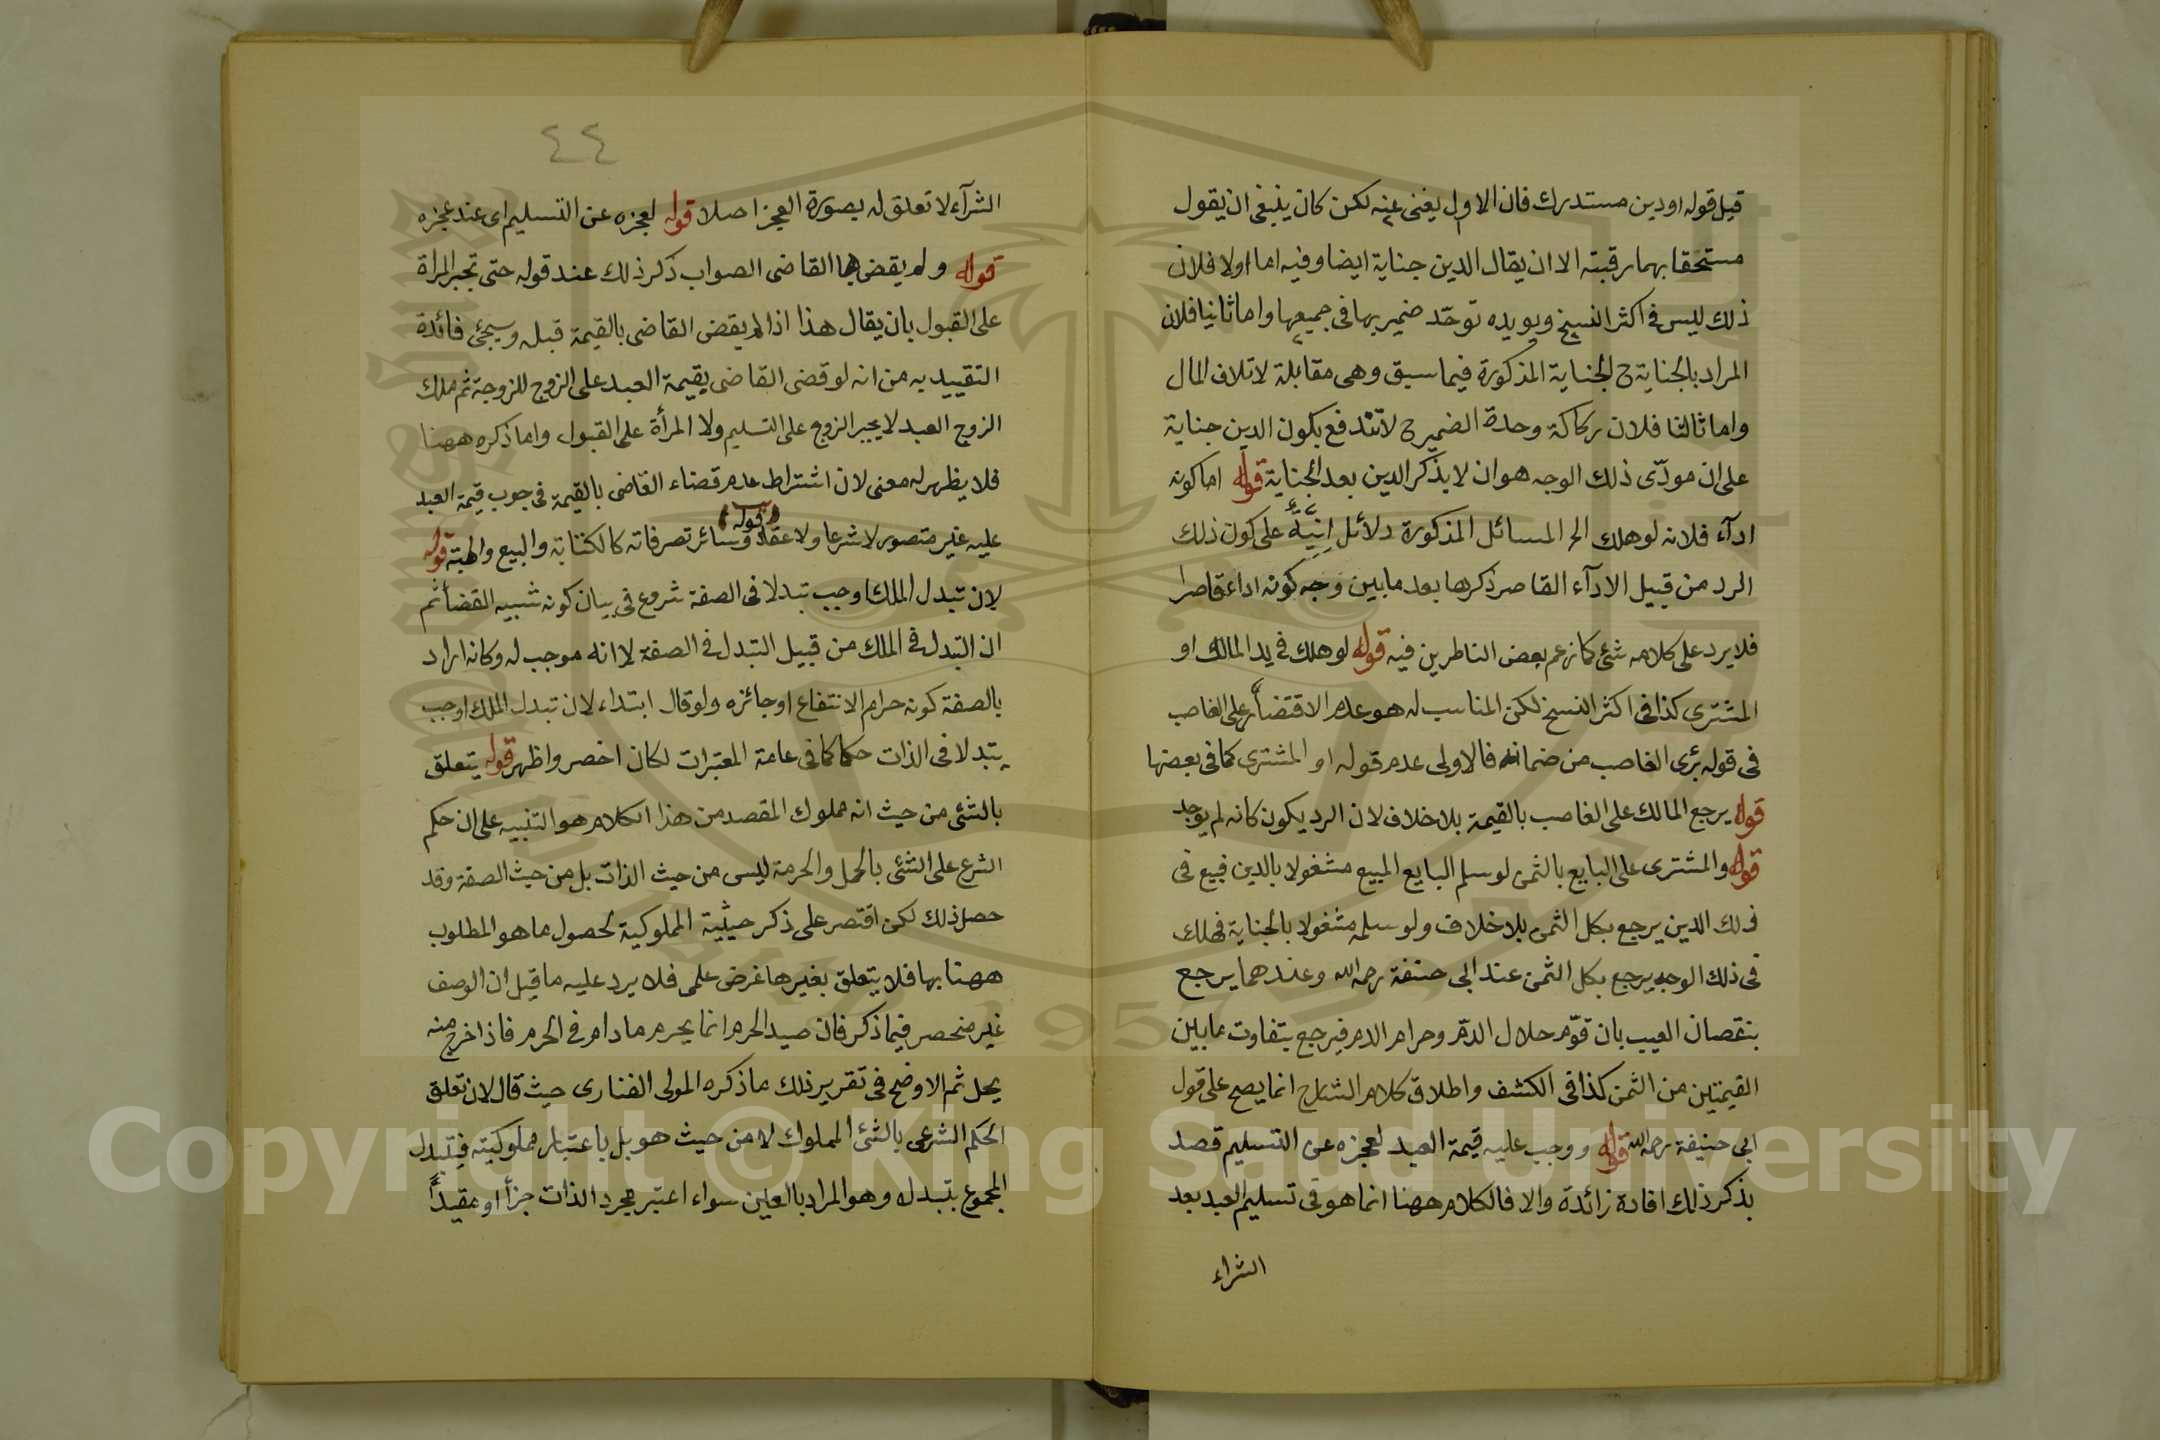 قيل قوله او دين مستدرك فان الاول يغنى عنه لكن كان ينبغى ان يقول
مستحقا بهما رقبته الا ان يقال الدين جناية ايضا وفيه اما اولا فلان
ذلك ليس فى اكثر النسخ ويويده توحّد ضمير بها فى جميعها واما ثانيا فلان
المراد بالجناية ح الجناية المذكورة فيما سبق وهى مقابلة لاتلاف المال
واما ثالثا فلان ركاكة وحدة الضمير ح لا تندفع بكون الدين جناية
على ان مودّى ذلك الوجه هو ان لا يذكر الدين بعد الجناية قوله اما كونه
ادآء فلانه لو هلك الخ المسائل المذكورة دلائل اِنِيّة على كون ذلك
الرد من قبيل الادآء القاصر ذكرها بعد ما بين وجه كونه اداء قاصرا
فلا يرد على كلامه شئ كما زعم بعض الناظرين فيه قوله لو هلك فى يد المالك او
المشترى كذا فى اكثر النسخ لكن المناسب له هو عدم الاقتضاء على الغاصب
فى قوله برى الغاصب من ضمانه فالاولى عدم قوله او المشترى كما فى بعضها
قوله يرجع المالك على الغاصب بالقيمة بلا خلاف لان الرد يكون كانه لم يوجد
قوله والمشترى على البايع بالثمن لو سلم البايع المبيع مشغولا بالدين فبيع فى
ذلك الدين يرجع بكل الثمن بلا خلاف ولو سلمه مشغولا بالجناية فهلك
فى ذلك الوجه يرجع بكل الثمن عند ابى حنيفة رحمه الله وعندهما يرجع
بنقصان العيب بان قوّم حلال الدم وحرام الدم فيرجع بتفاوت ما بين
القيمتين من الثمن كذا فى الكشف واطلاق كلام الشارح انما يصح على قول
ابى حنيفة رحمه الله قوله ووجب عليه قيمة العبد لعجزه عن التسليم قصد
بذكر ذلك افادة زائدة والا فالكلام ههنا انما هو فى تسليم العبد بعد
الشراء
٤٤
الشرآء لا تعلق له بصورة العجز اصلا قوله لعجزه عن التسليم اى عند عجزه
قوله ولم يقض بها القاضى الصواب ذكر ذلك عند قوله حتى تجبر المراة
على القبول بان يقال هذا اذا لم يقض القاضى بالقيمة قبله وسيجئ فائدة
التقييد به من انه لو قضى القاضى بقيمة العبد على الزوج للزوجة ثم ملك
الزوج العبد لا يجبر الزوج على التسليم ولا المرأة على القبول واما ذكره ههنا
فلا يظهر له معنى لان اشتراط عدم قضاء القاضى بالقيمة فى جوب قيمة العبد
عليه غير متصور لا شرعا ولا عقلا قوله وسائر تصرفاته كالكتابة والبيع والهبة قوله
لان تبدل الملك اوجب تبدلا فى الصفة شروع فى بيان كونه شبيه القضأ ثم
ان التبدل فى الملك من قبيل التبدل فى الصفة لا انه موجب له وكانه اراد
بالصفة كونه حرام الانتفاع او جائزه ولو قال ابتداء لان تبدل الملك اوجب
تبدلا فى الذات حكما كما فى عامة المعتبرات لكان اخصر واظهر قوله يتعلق
بالشئ من حيث انه مملوك المقصد من هذا الكلام هو التنبيه على ان حكم
الشرع على الشئ بالحل والحرمة ليس من حيث الذات بل من حيث الصفة وقد
حصل ذلك لكن اقتصر على ذكر حيثية المملوكية لحصول ما هو المطلوب
ههنا بها فلا يتعلق بغيرها غرض علمى فلا يرد عليه ما قيل ان الوصف
غير منحصر فيما ذكر فان صيد الحرم انما يحرم ما دام فى الحرم فاذا خرج منه
يحل ثم الاوضح فى تقرير ذلك ما ذكره المولى الفنارى حيث قال لان تعلق
الحكم الشرعى بالشئ المملوك لا من حيث هو بل باعتبار مملوكيته فيتبدل
المجموع بتبدله وهو المراد بالعين سواء اعتبر مجرد الذات جزأ او مقيداً
Copyright © King Saud University
1957